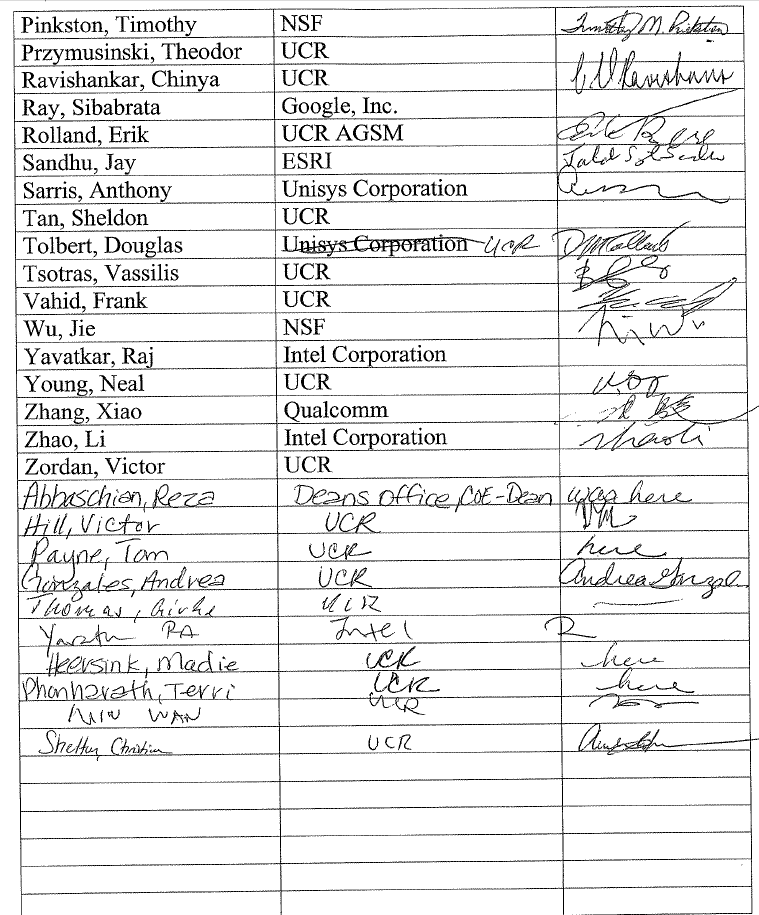 Pinkston, Timothy NSF Timothy M. Pinkston
Przymusinski, Theodor UCR
Ravishankar, Chinya UCR
Ray, Sibabrata Google, Inc.
Rolland, Erik UCR AGSM
Sandhu, Jay ESRI
Sarris, Anthony Unisys Corporation
Tan, Sheldon UCR
Tolbert, Douglas Unisys Corporation UCR
Tsotras, Vassilis UCR
Vahid, Frank UCR
Wu, Jie NSF
Yavatkar, Raj Intel Corporation
Young, Neal UCR
Zhang, Xiao Qualcomm
Zhao, Li Intel Corporation
Zordan, Victor UCR
Abbaschian, Reza Deans office, COE-Dean was here
Hill, Victor UCR
Payne, Tom UCR here
Gonzales, Andrea UCR Andrea Gonzal
Thomas, UCR
Intel
Heersink, Madie UCR here
Phonharath, Terri UCR here
WAN UCR
Shelton, Christian UCR